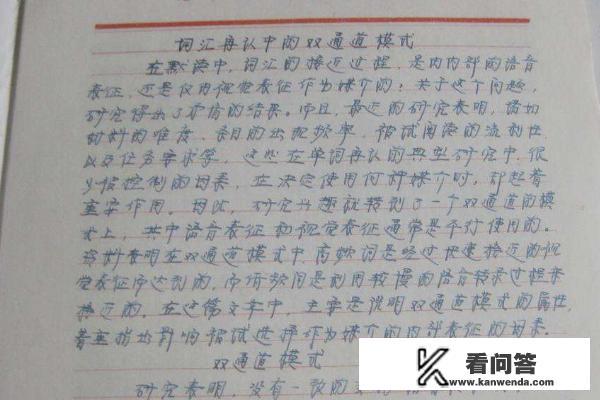 词汇再认中的双通道模式
在默读中,词汇的接近过程,是内内部的语音
表征,还是仅内视觉表征作为媒介的?关于这个问题,
研究得出了矛盾的结果。而且,最近的研究表明,诸如
材料的难度、条目的出现频率、被试阅读的流利性
以及任务要求等,这些在单词再认的典型研究中,很
少被控制的因素,在决定使用何种媒介时,却起着
重要作用。因此,研究兴趣就转到了一个双通道的模
式上,其中语音表征和视觉表征通常是平行使用的。
资料表明在双通道模式中,高频词是经过快速接近的视
觉表征而达到的,而低频词是利用较慢的语音转录过程来
接近的。在这篇文章中,主要是说明双通道模式的属性,
着重指出影响被试选择作为媒介的内部表征的因素。
双通道模式
研究表明,没有一致的
K 看问答
www.kanwenda.com